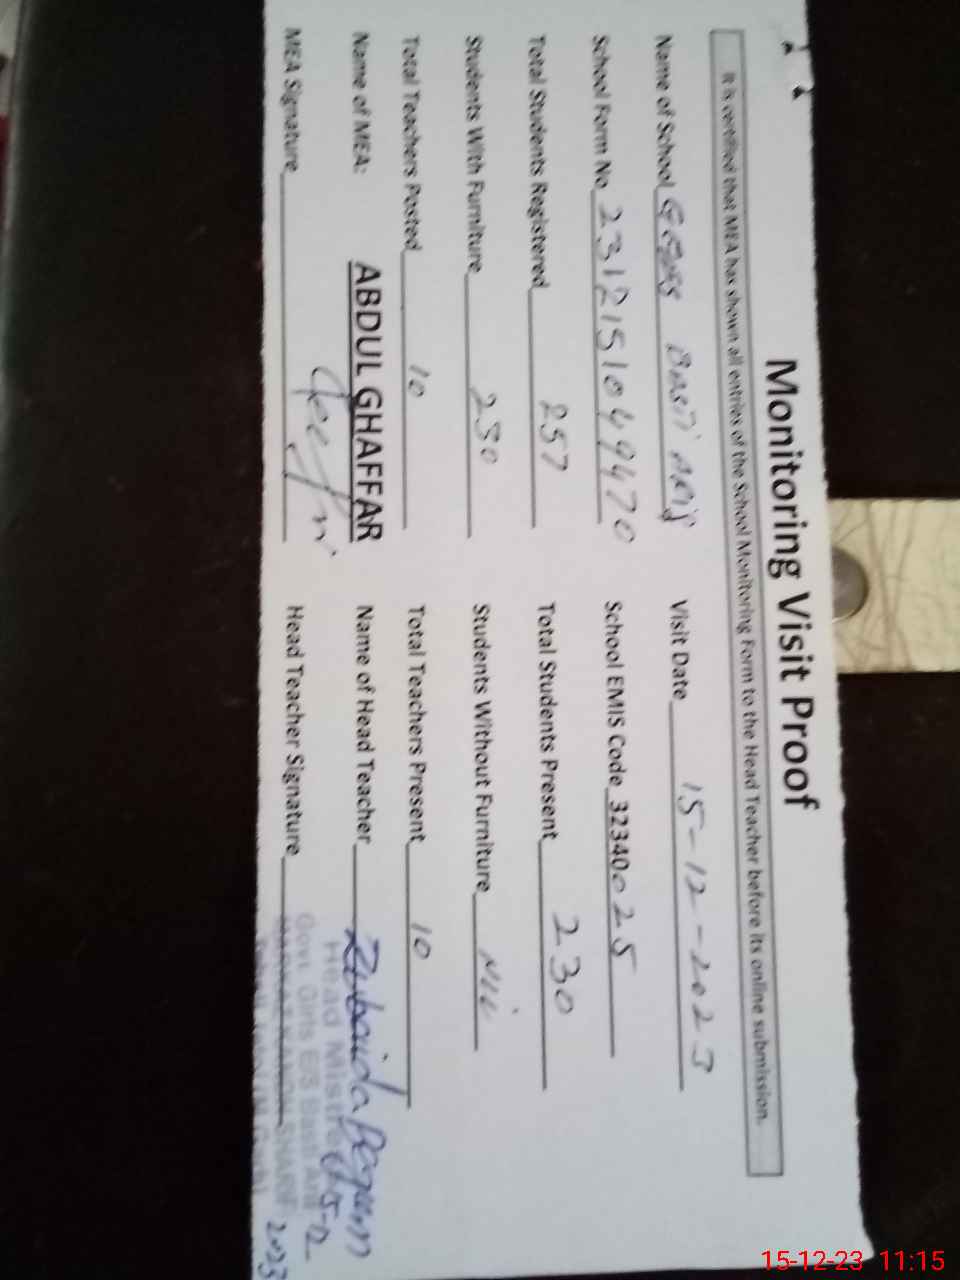 Monitoring Visit Proof
It is certified that MEA has shown all entries of the School Monitoring Form to the Head Teacher before its online submission.
Name of School Visit Date 15-12-2023
School Form No 23121510449470 School EMIS Code 32340025
Total Students Registered 257 Total Students Present 230
Students With Furniture 230 Students Without Furniture Nil
Total Teachers Posted 10 Total Teachers Present 10
Name of MEA: ABDUL GHAFFAR Name of Head Teacher Zubaida Begum
MEA Signature Head Teacher Signature
Head Mistress 15-12
Govt. Girls E/S Basti Arif
2023
15-12-23 11:15